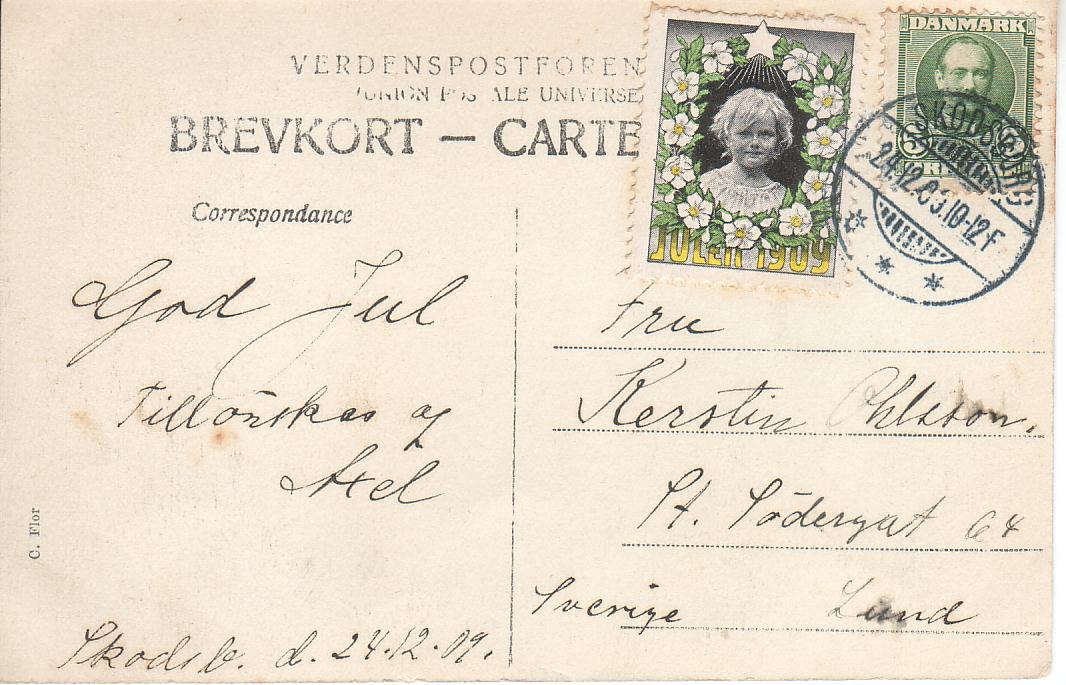 VERDENSPOSTFOREN
UNION POSTALE UNIVERSE
BREVKORT — CARTE
DANMARK
5 5
ØRE
SKODSBORG
24.12.09.10-12F
JULEN 1909
Correspondance
God Jul
Tillönskas af
Axel
Skodsb. d. 24.12.09.
Fru
Kerstin Ohlsson.
St. Södergat 64
Sverige Lund
C. Flor